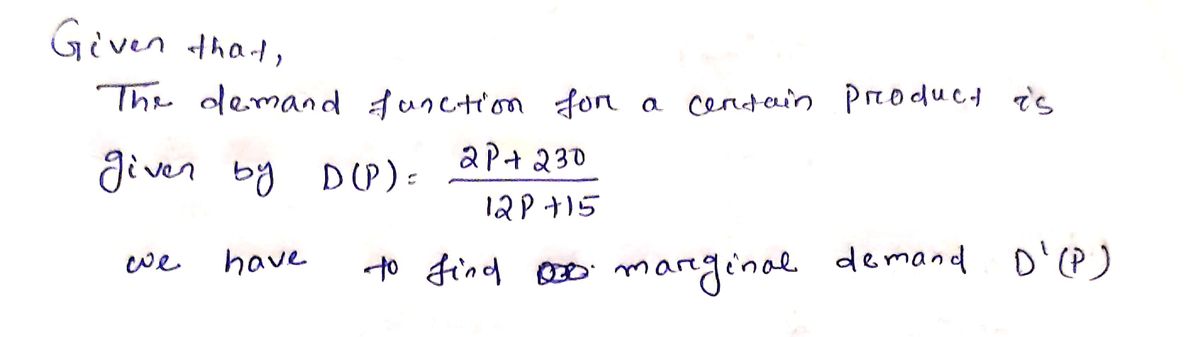 Given that,
The demand function for a certain product is
given by D(P) = 2P+230 / 12P+15
we have to find marginal demand D'(P)